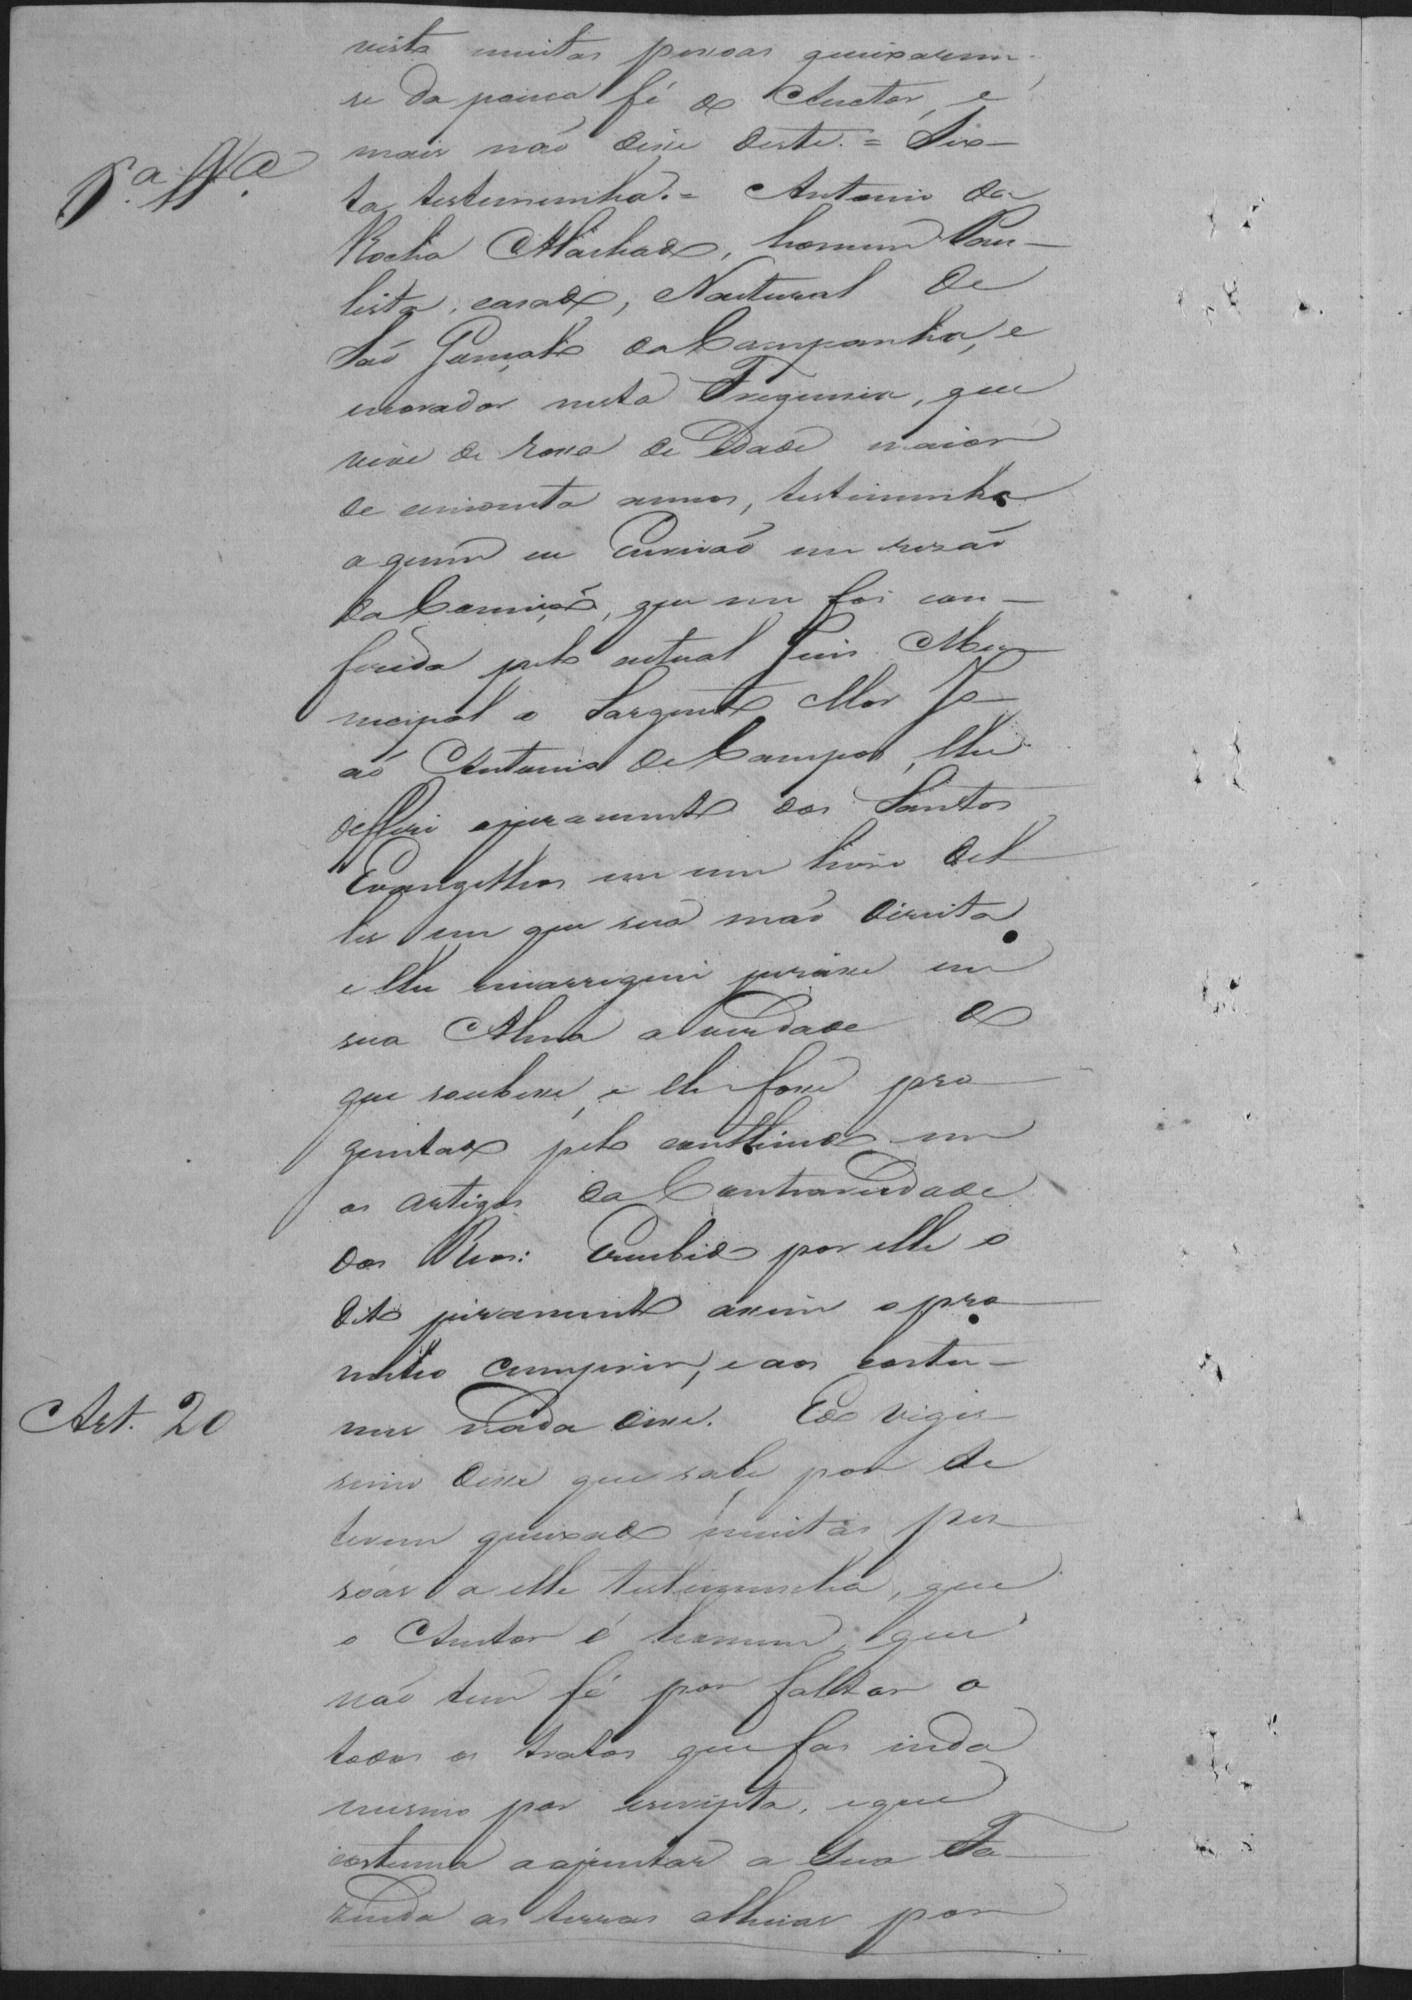 vista muitas pessoas queixarem-
se da pouca fé do Auctor, e
mais não disse deste. = Sex-
ta testemunha. = Antonio da
Rocha Machado, homem Pau-
lista, casado, Natural de
São Gonçalo da Campanha, e
morador nesta Freguesia, que
vive de rossa de Idade maior
de cincoenta annos, testemunha
a quem eu Escrivão em rasão
da Comissão, que me foi con-
ferida pelo actual Juis Mu-
nicipal o Sargento Mor Jo-
ão Antonio de Campos, lhe
defferi o juramento dos Santos
Evangelhos em um livro del-
les em que sua mão direita
e lhe encarreguei jurasse em
sua Alma a verdade do
que soubesse, e lhe fosse pro-
guntado pelo contheudo em
os artigos da Contrariedade
dos Reos: Recebido por elle o
dito juramento assim o pro-
metteo cumprir, e aos costu-
mes nada disse. Ao vige-
simo disse que sabe por se
terem queixado muitas pes-
soas a elle testemunha, que
o Auctor é homem, que
não tem fé por faltar a
todos os tratos que fas inda
mesmo por escripto, e que
costuma a ajuntar a sua Fa-
zenda as terras alheias por
Art. 20